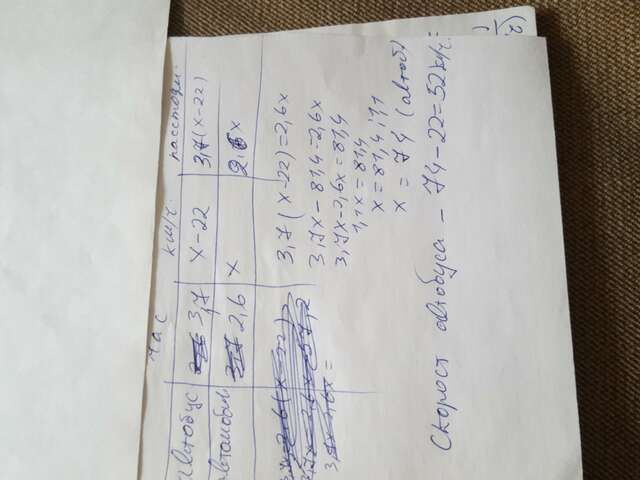 час км/ч. расстоян.
Автобус 3,7 x-22 3,7(x-22)
Автомобиль 2,6 x 2,6x
3,7(x-22)=2,6x
3,7x-81,4=2,6x
3,7x-2,6x=81,4
1,1x=81,4
x=81,4:1,1
x=74 (автоб)
Скорост автобуса - 74-22=52км/ч.